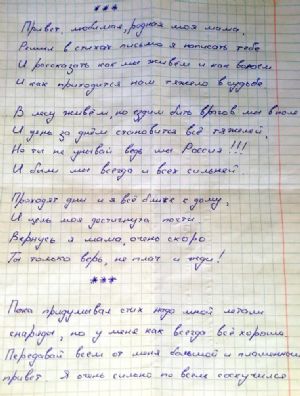 ***
Привет, любимая, родная моя мама,
Решил в стихах письмо я написать тебе
И рассказать как мы живём и как воюем
И как приходится нам тяжело в судьбе
В лесу живём, но ездим бить врагов мы в поле
И день за днём становится всё тяжелей,
Но ты не унывай ведь мы Россия!!!
И были мы всегда и всех сильней.
Проходят дни и я всё ближе к дому,
И цель моя достигнута почти.
Вернусь я мама, очень скоро.
Ты только верь, не плач и жди!
***
Пока придумывал стих надо мной летали
снаряды, но у меня как всегда всё хорошо.
Передавай всем от меня большой и пламенный
привет. Я очень сильно по всем соскучился